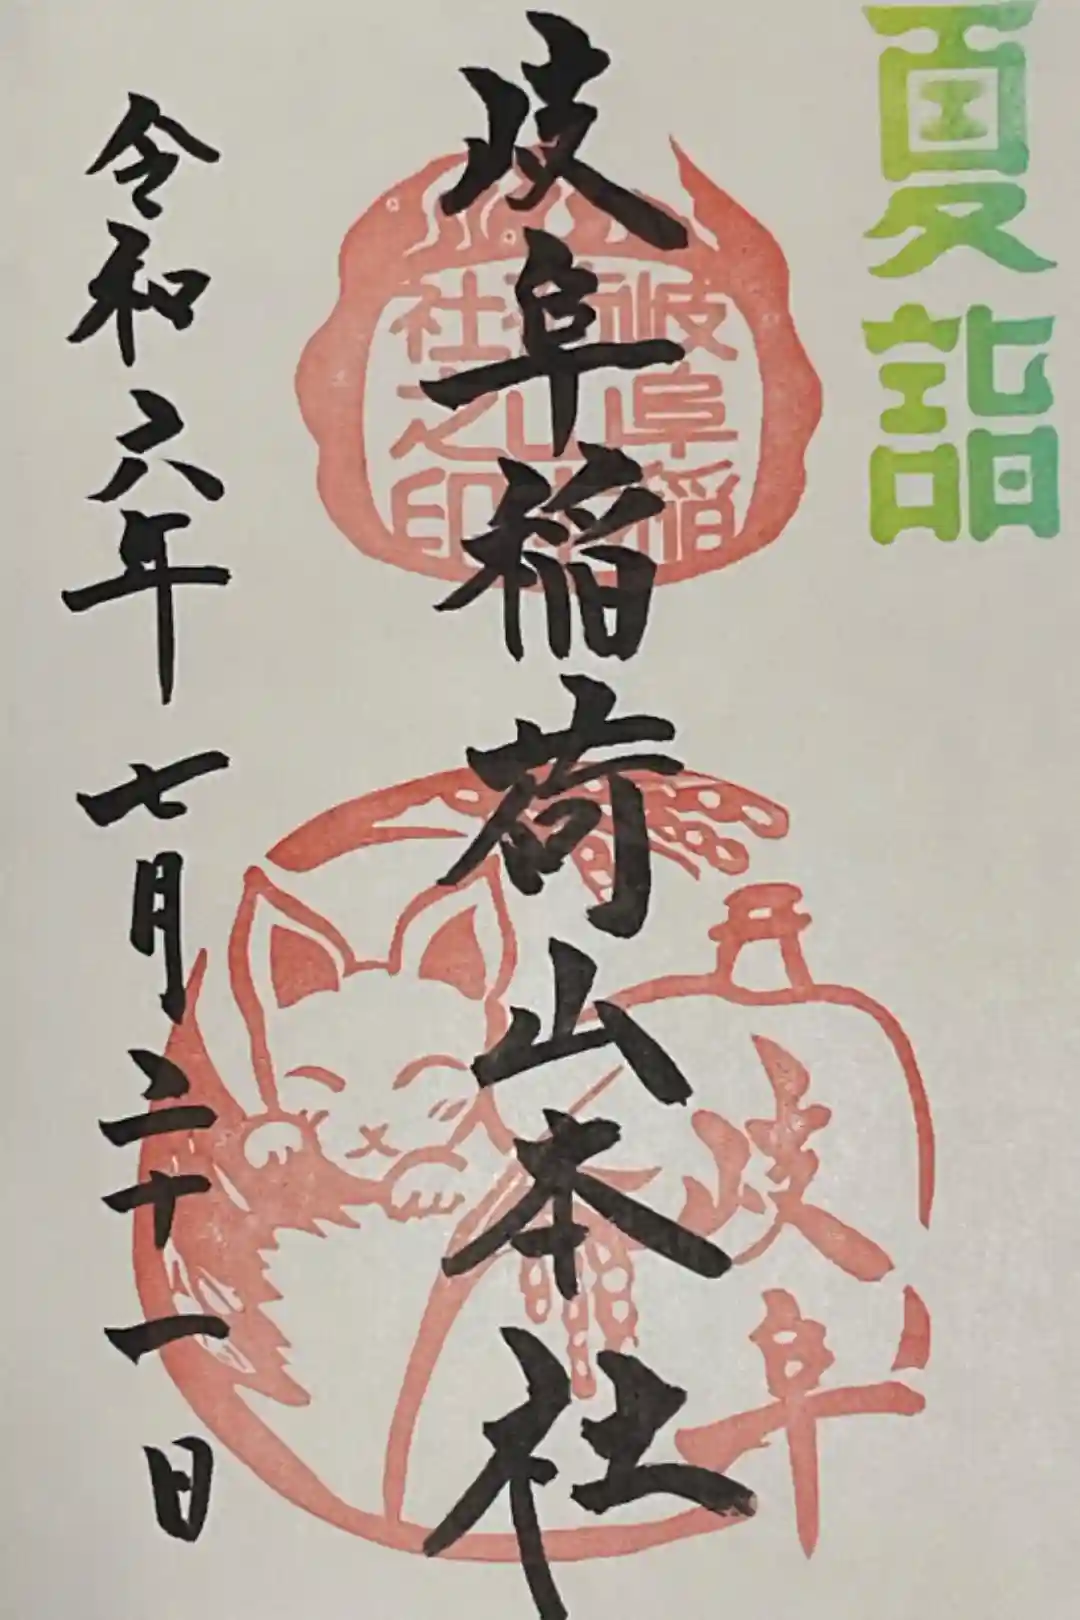 夏詣
岐阜稲荷山本社
岐阜稲
荷山本
社之印
岐阜
令和六年七月二十一日